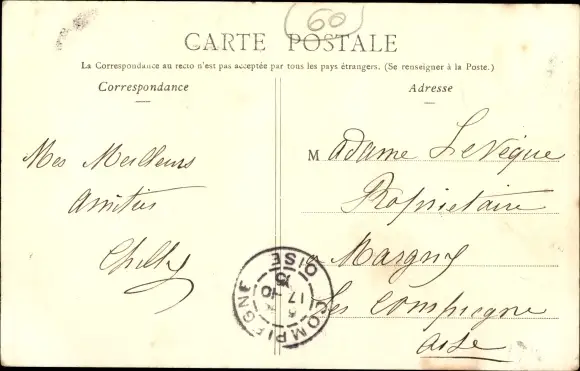 60
CARTE POSTALE
La Correspondance au recto n'est pas acceptée par tous les pays étrangers. (Se renseigner à la Poste.)
Correspondance
Mes Meilleurs
Amitiés
Adresse
Madame LeVêque
Propriétaire
a Margny
Les Compiegne
Oise
COMPIEGNE
OISE
17